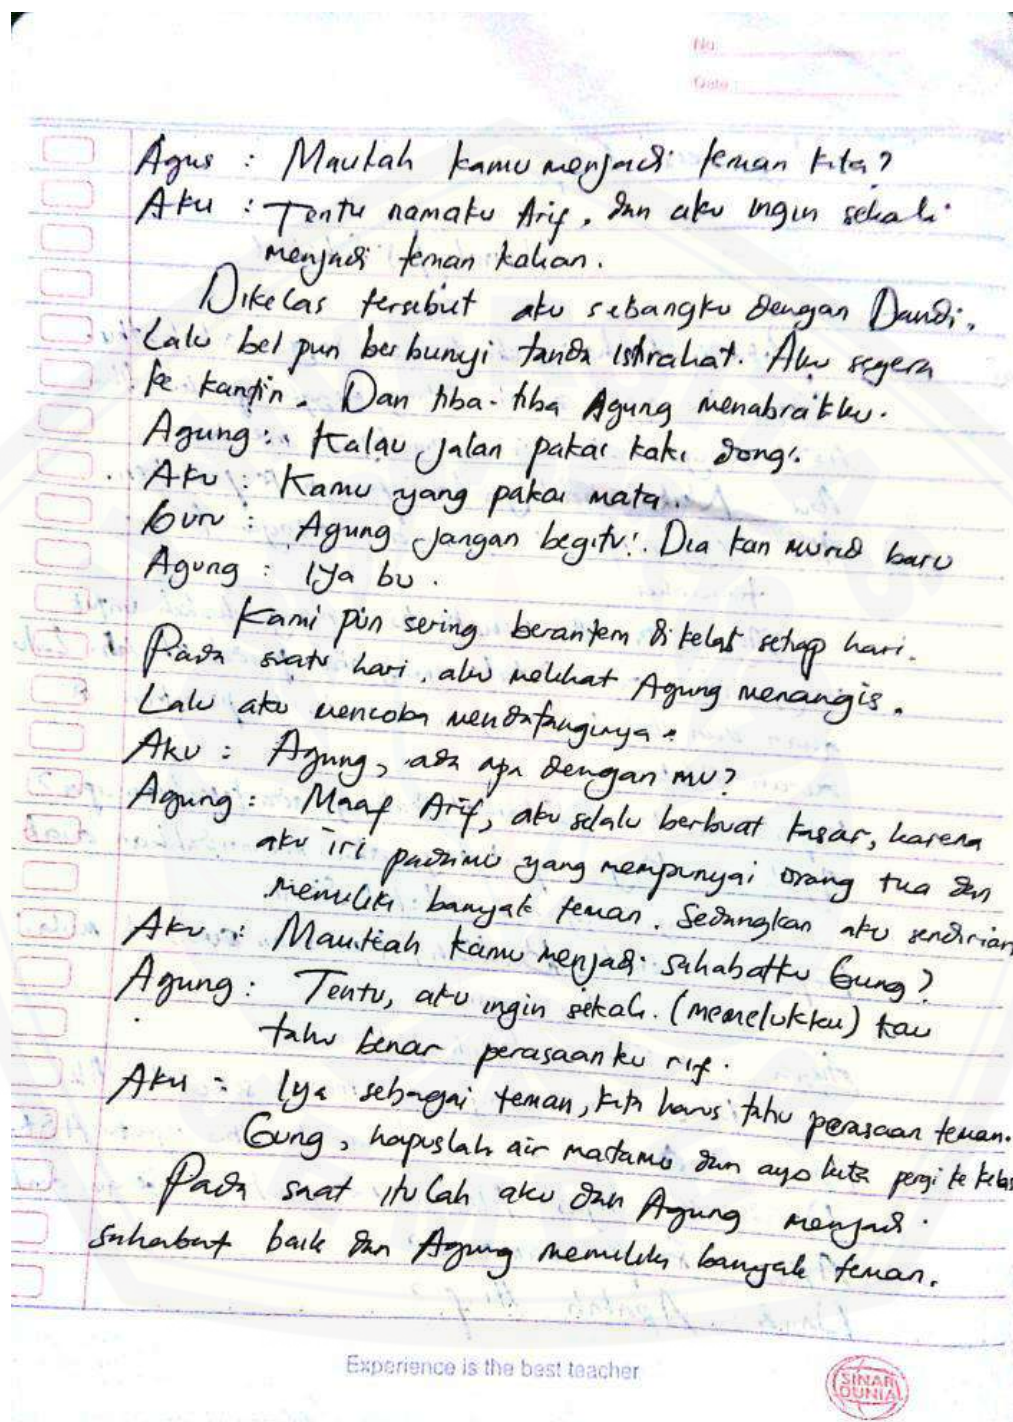 No.
Date
Agus : Maukah kamu menjadi teman kita?
Aku : Tentu namaku Arif, dan aku ingin sekali
menjadi teman kalian.
Dikelas tersebut aku sebangku dengan Dandi.
Lalu bel pun berbunyi tanda istirahat. Aku segera
ke kantin. Dan tiba-tiba Agung menabrakku.
Agung : Kalau jalan pakai kaki dong!
Aku : Kamu yang pakai mata.
Guru : Agung jangan begitu! Dia kan murid baru
Agung : Iya bu.
Kami pun sering berantem di kelas setiap hari.
Pada suatu hari, aku melihat Agung menangis.
Lalu aku mencoba mendatanginya.
Aku : Agung, ada apa dengan mu?
Agung : Maaf Arif, aku selalu berbuat kasar, karena
aku iri padamu yang mempunyai orang tua dan
memiliki banyak teman. Sedangkan aku sendirian
Aku : Maukah kamu menjadi sahabatku Gung?
Agung : Tentu, aku ingin sekali. (memelukku) kau
tahu benar perasaanku rif.
Aku : Iya sebagai teman, kita harus tahu perasaan teman.
Gung, hapuslah air matamu dan ayo kita pergi ke kelas
Pada saat itulah aku dan Agung menjadi
sahabat baik dan Agung memiliki banyak teman.
Experience is the best teacher
SINAR
DUNIA